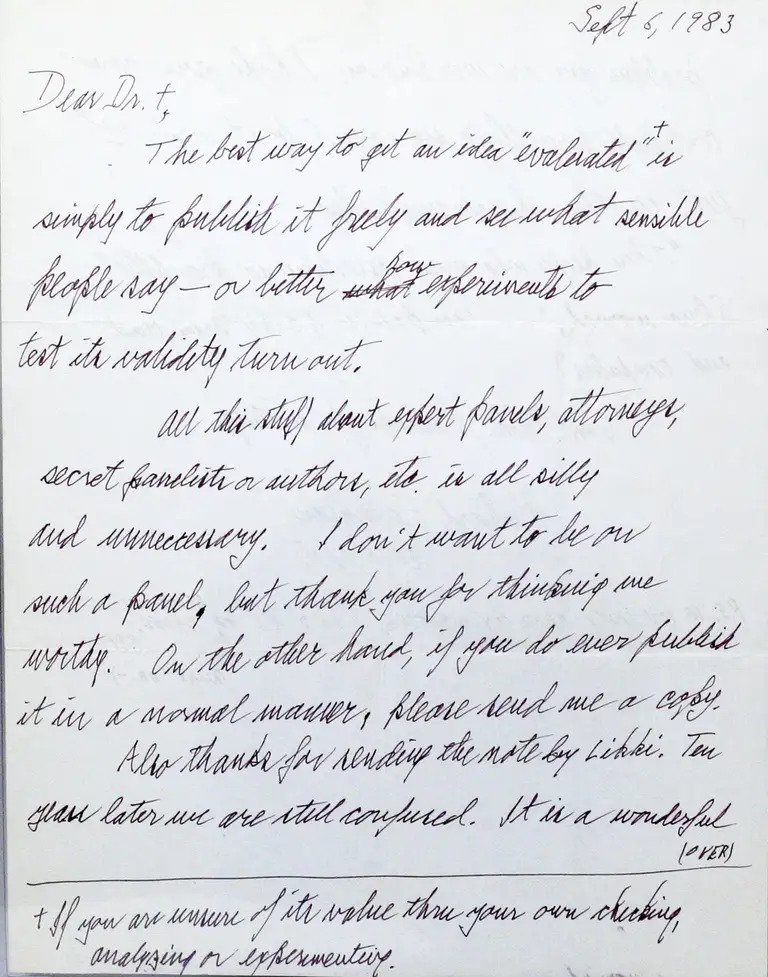 Sept 6, 1983
Dear Dr. †,
The best way to get an idea "evaluated"† is
simply to publish it freely and see what sensible
people say — or better what how experiments to
test its validity turn out.
All this stuff about expert panels, attorneys,
secret panelists or authors, etc. is all silly
and unneccessary. I don't want to be on
such a panel, but thank you for thinking me
worthy. On the other hand, if you do ever publish
it in a normal manner, please send me a copy.
Also thanks for sending the note by Likki. Ten
years later we are still confused. It is a wonderful
(OVER)
† If you are unsure of its value thru your own checking,
analyzing or experimenting.